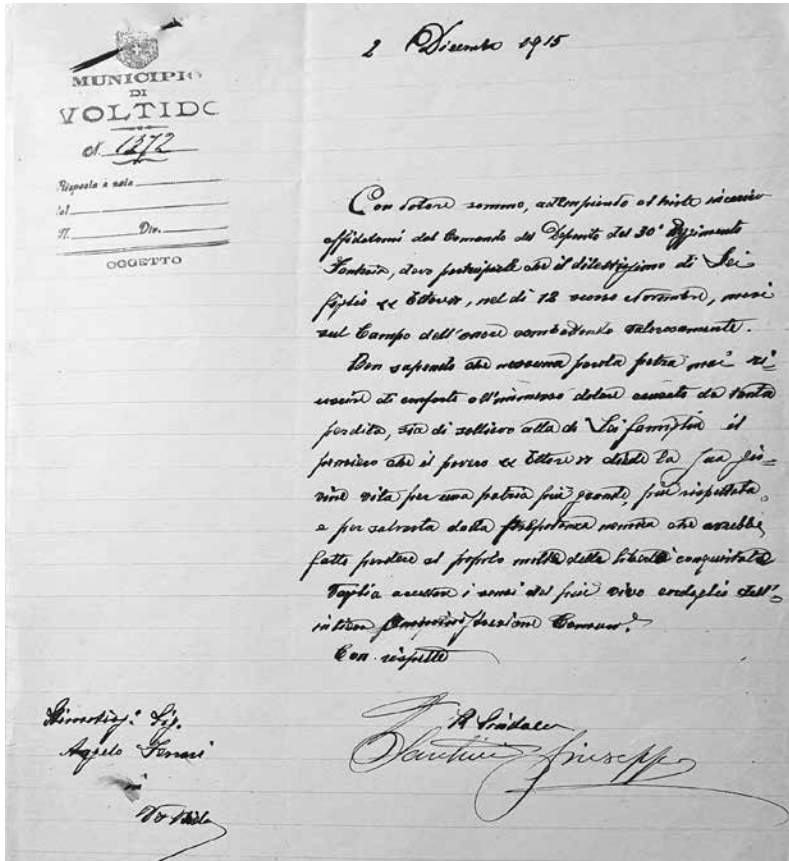 MUNICIPIO
DI
VOLTIDO
N. 1372
Risposta a nota
del
N. Div.
OGGETTO
2 Dicembre 1915
Con dolore sommo, adempiendo al triste incarico
affidatomi dal Comando del Deposito del 30° Reggimento
Fanteria, devo parteciparle che il dilettissimo di Lei
figlio « Ettore », nel dì 12 scorso Novembre, morì
sul Campo dell'onore combattendo valorosamente.
Ben sapendo che nessuna parola potrà mai ri-
uscire di conforto all'immenso dolore causato da tanta
perdita, sia di sollievo alla di Lei famiglia il
pensiero che il povero « Ettore » diede la sua gio-
vine vita per una patria più grande, più rispettata,
e per salvarla dalla prepotenza nemica che avrebbe
fatto perdere al popolo molte delle libertà conquistate
Voglia accettare i sensi del più vivo cordoglio dell'-
intiera Amministrazione Comun.
Con rispetto
Stimatiss. Sig.
Angelo Ferrari
in
Voltido
Il Sindaco
Giuseppe